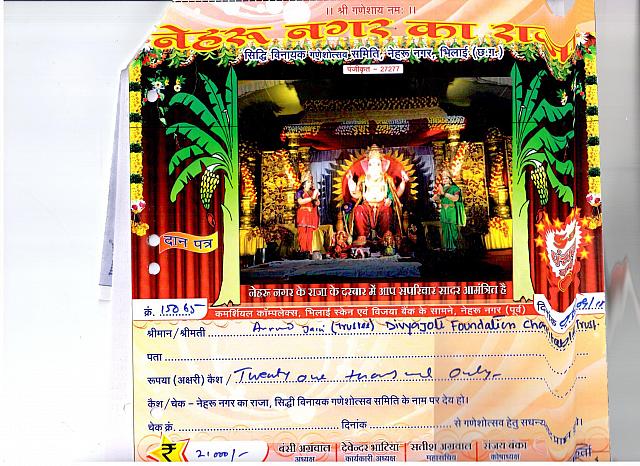 ।। श्री गणेशाय नमः ।।
नेहरू नगर का राजा
सिद्धि विनायक गणेशोत्सव समिति, नेहरू नगर, भिलाई (छ.ग.)
पंजीकृत - 27277
दान पत्र
नेहरू नगर के राजा के दरबार में आप सपरिवार सादर आमंत्रित है
क्रं. 15065 कमर्शियल कॉम्पलेक्स, भिलाई स्केन एवं विजया बैंक के सामने, नेहरू नगर (पूर्व) दिनांक
श्रीमान/श्रीमती Jain (Trustee) Divyajoti Foundation Charitable Trust.
पता
रूपया (अक्षरी) कैश / Twenty one thousand Only-
कैश / चेक - नेहरू नगर का राजा, सिद्धि विनायक गणेशोत्सव समिति के नाम पर देय हो।
चेक क्रं. दिनांक से गणेशोत्सव हेतु सधन्यवाद
₹ 21000/- बंसी अग्रवाल देवेन्दर भाटिया सतीश अग्रवाल संजय बंका
अध्यक्ष कार्यकारी अध्यक्ष महासचिव कोषाध्यक्ष